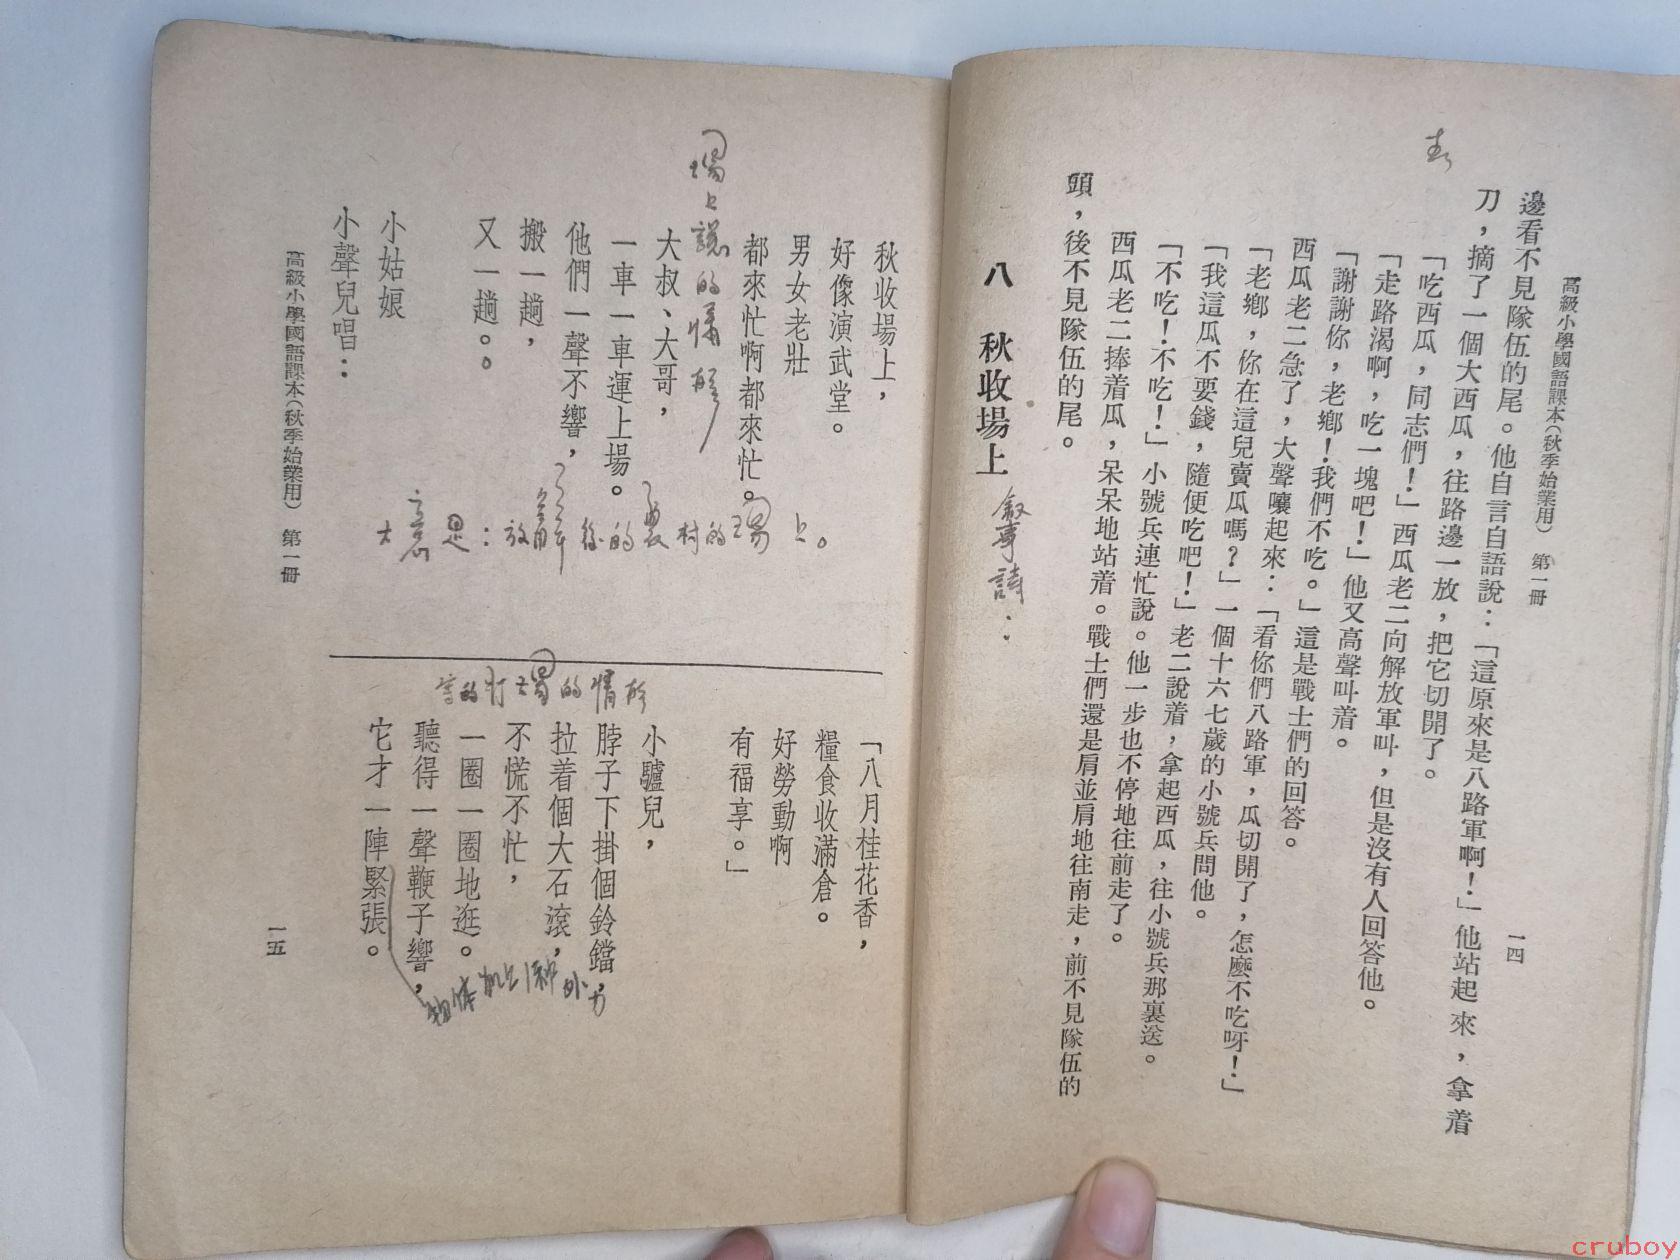 高級小學國語課本(秋季始業用) 第一冊
一四
邊看不見隊伍的尾。他自言自語說：「這原來是八路軍啊！」他站起來，拿着
刀，摘了一個大西瓜，往路邊一放，把它切開了。
「吃西瓜，同志們！」西瓜老二向解放軍叫，但是沒有人回答他。
「走路渴啊，吃一塊吧！」他又高聲叫着。
「謝謝你，老鄉！我們不吃。」這是戰士們的回答。
西瓜老二急了，大聲嚷起來：「看你們八路軍，瓜切開了，怎麼不吃呀！」
「老鄉，你在這兒賣瓜嗎？」一個十六七歲的小號兵問他。
「我這瓜不要錢，隨便吃吧！」老二說着，拿起西瓜，往小號兵那裏送。
「不吃！不吃！」小號兵連忙說。他一步也不停地往前走了。
西瓜老二捧着瓜，呆呆地站着。戰士們還是肩並肩地往南走，前不見隊伍的
頭，後不見隊伍的尾。
八 秋收場上
敘事詩：
秋收場上，
好像演武堂。
男女老壯
都來忙啊都來忙。
場上說的情形
大叔、大哥，
一車一車運上場。
他們一聲不響，
搬一趟，
又一趟。。
小姑娘
小聲兒唱：
大意是：放年後的農村的場上。
「八月桂花香，
糧食收滿倉。
好勞動啊
有福享。」
寫的打場的情形
小驢兒，
脖子下掛個鈴鐺，
拉着個大石滾，
不慌不忙，
一圈一圈地逛。
聽得一聲鞭子響，
它才一陣緊張。
高級小學國語課本(秋季始業用) 第一冊
一五
cruboy